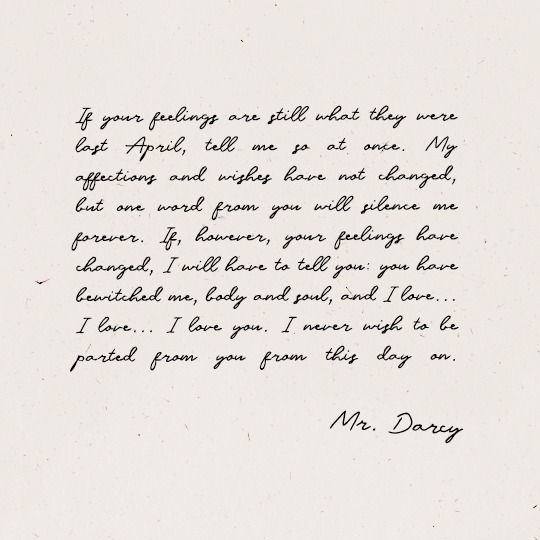 If your feelings are still what they were
last April, tell me so at once. My
affections and wishes have not changed,
but one word from you will silence me
forever. If, however, your feelings have
changed, I will have to tell you: you have
bewitched me, body and soul, and I love...
I love... I love you. I never wish to be
parted from you from this day on.
Mr. Darcy